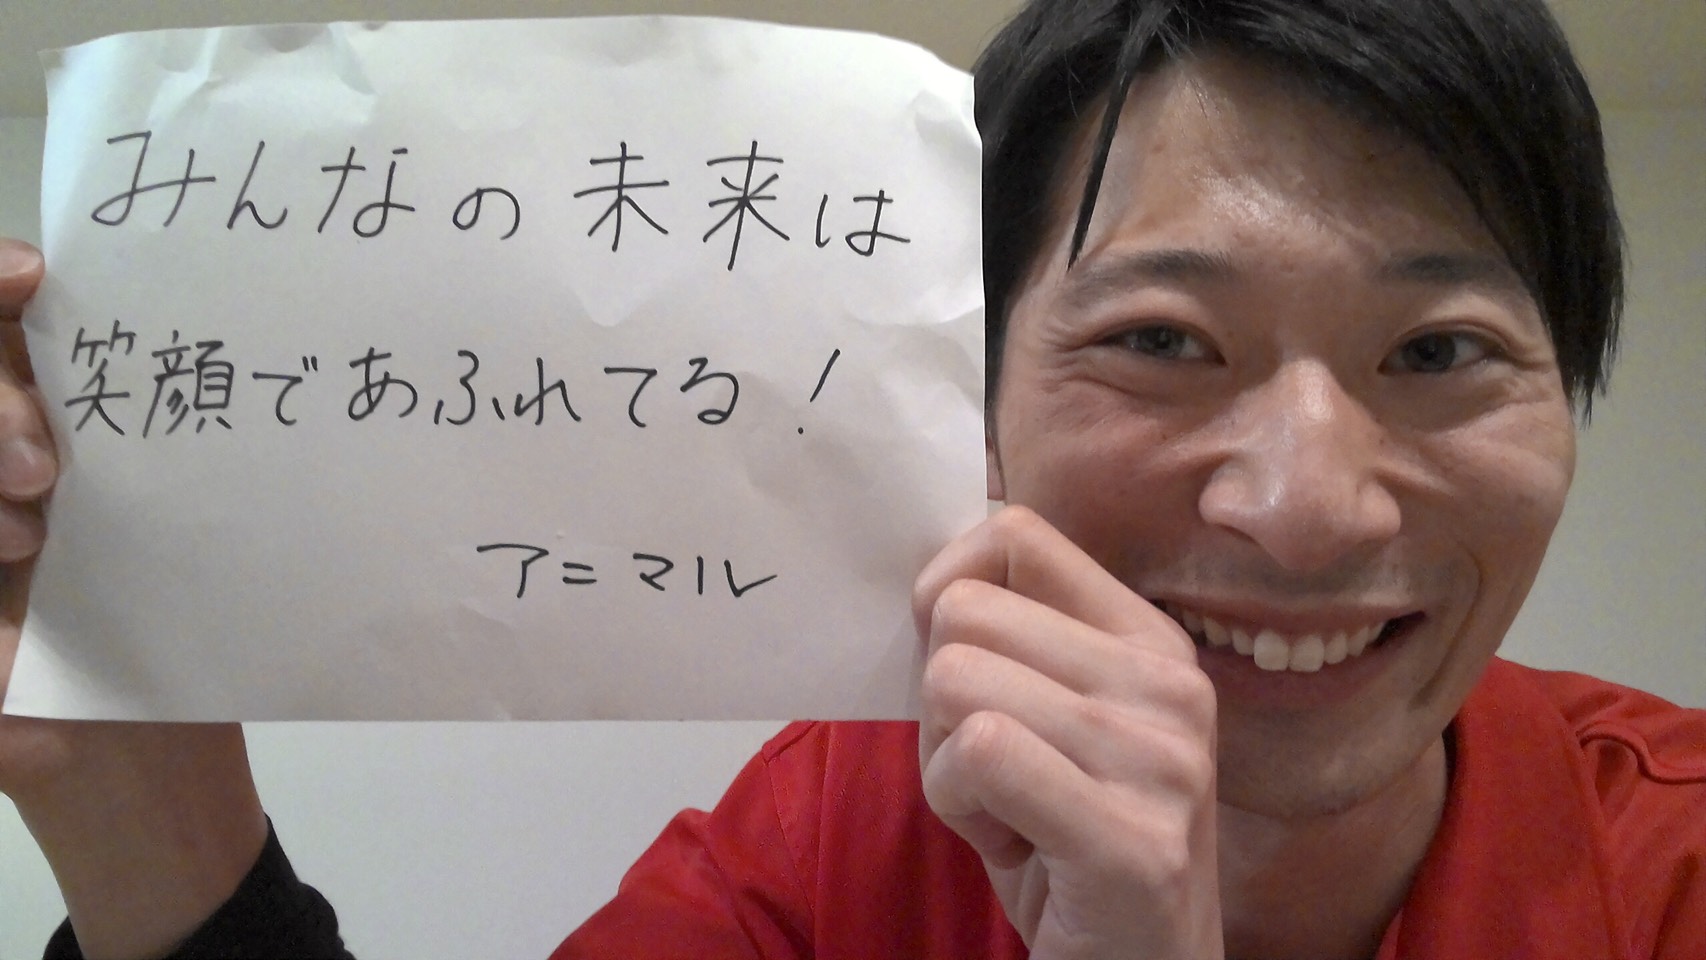 みんなの未来は
笑顔であふれてる！
アニマル